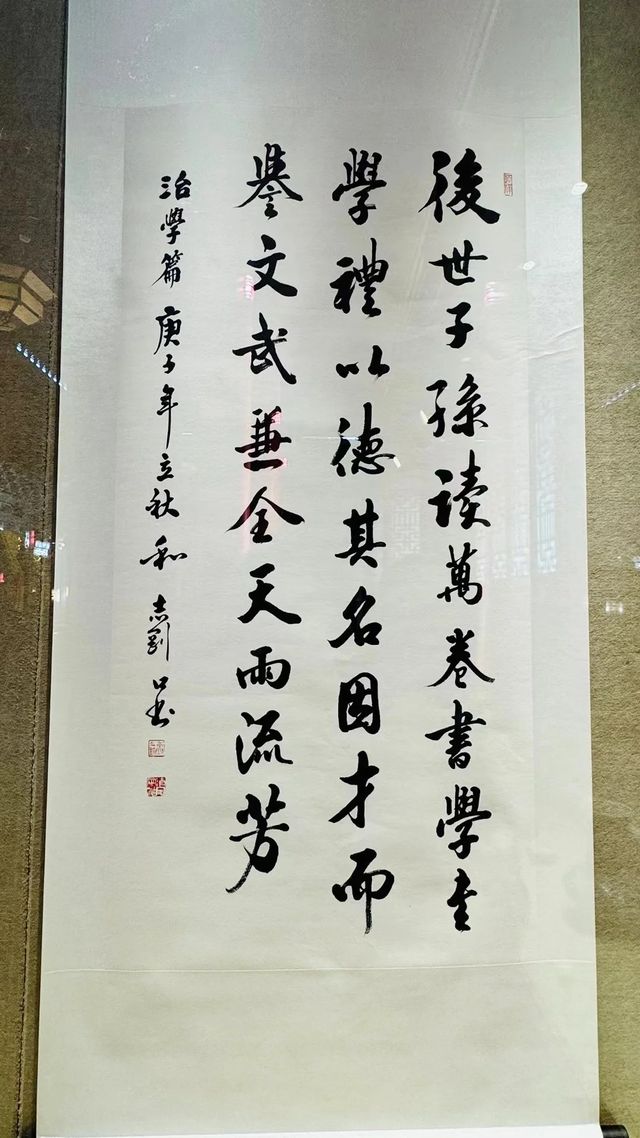 後世子孫讀萬卷書學
學禮以德其名因才而
譽文武兼全天雨流芳
治學篇 庚子年立秋 和志剛 口书